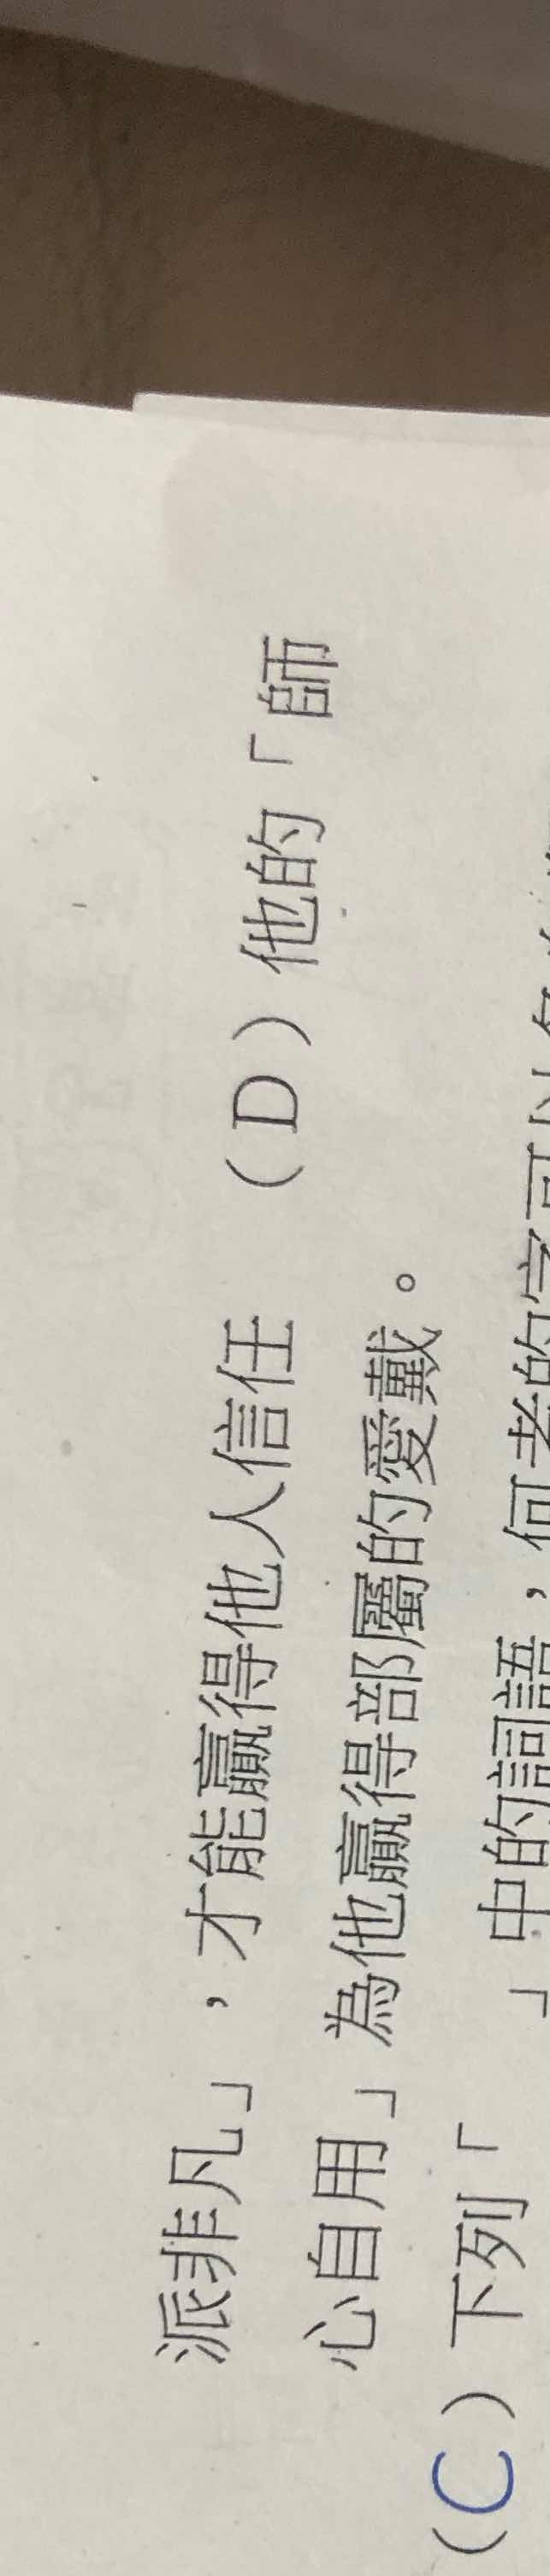 派非凡」，才能贏得他人信任 （D）他的「師
心自用」為他贏得部屬的愛戴。
（C）下列「 」中的詞語，何者的字可以